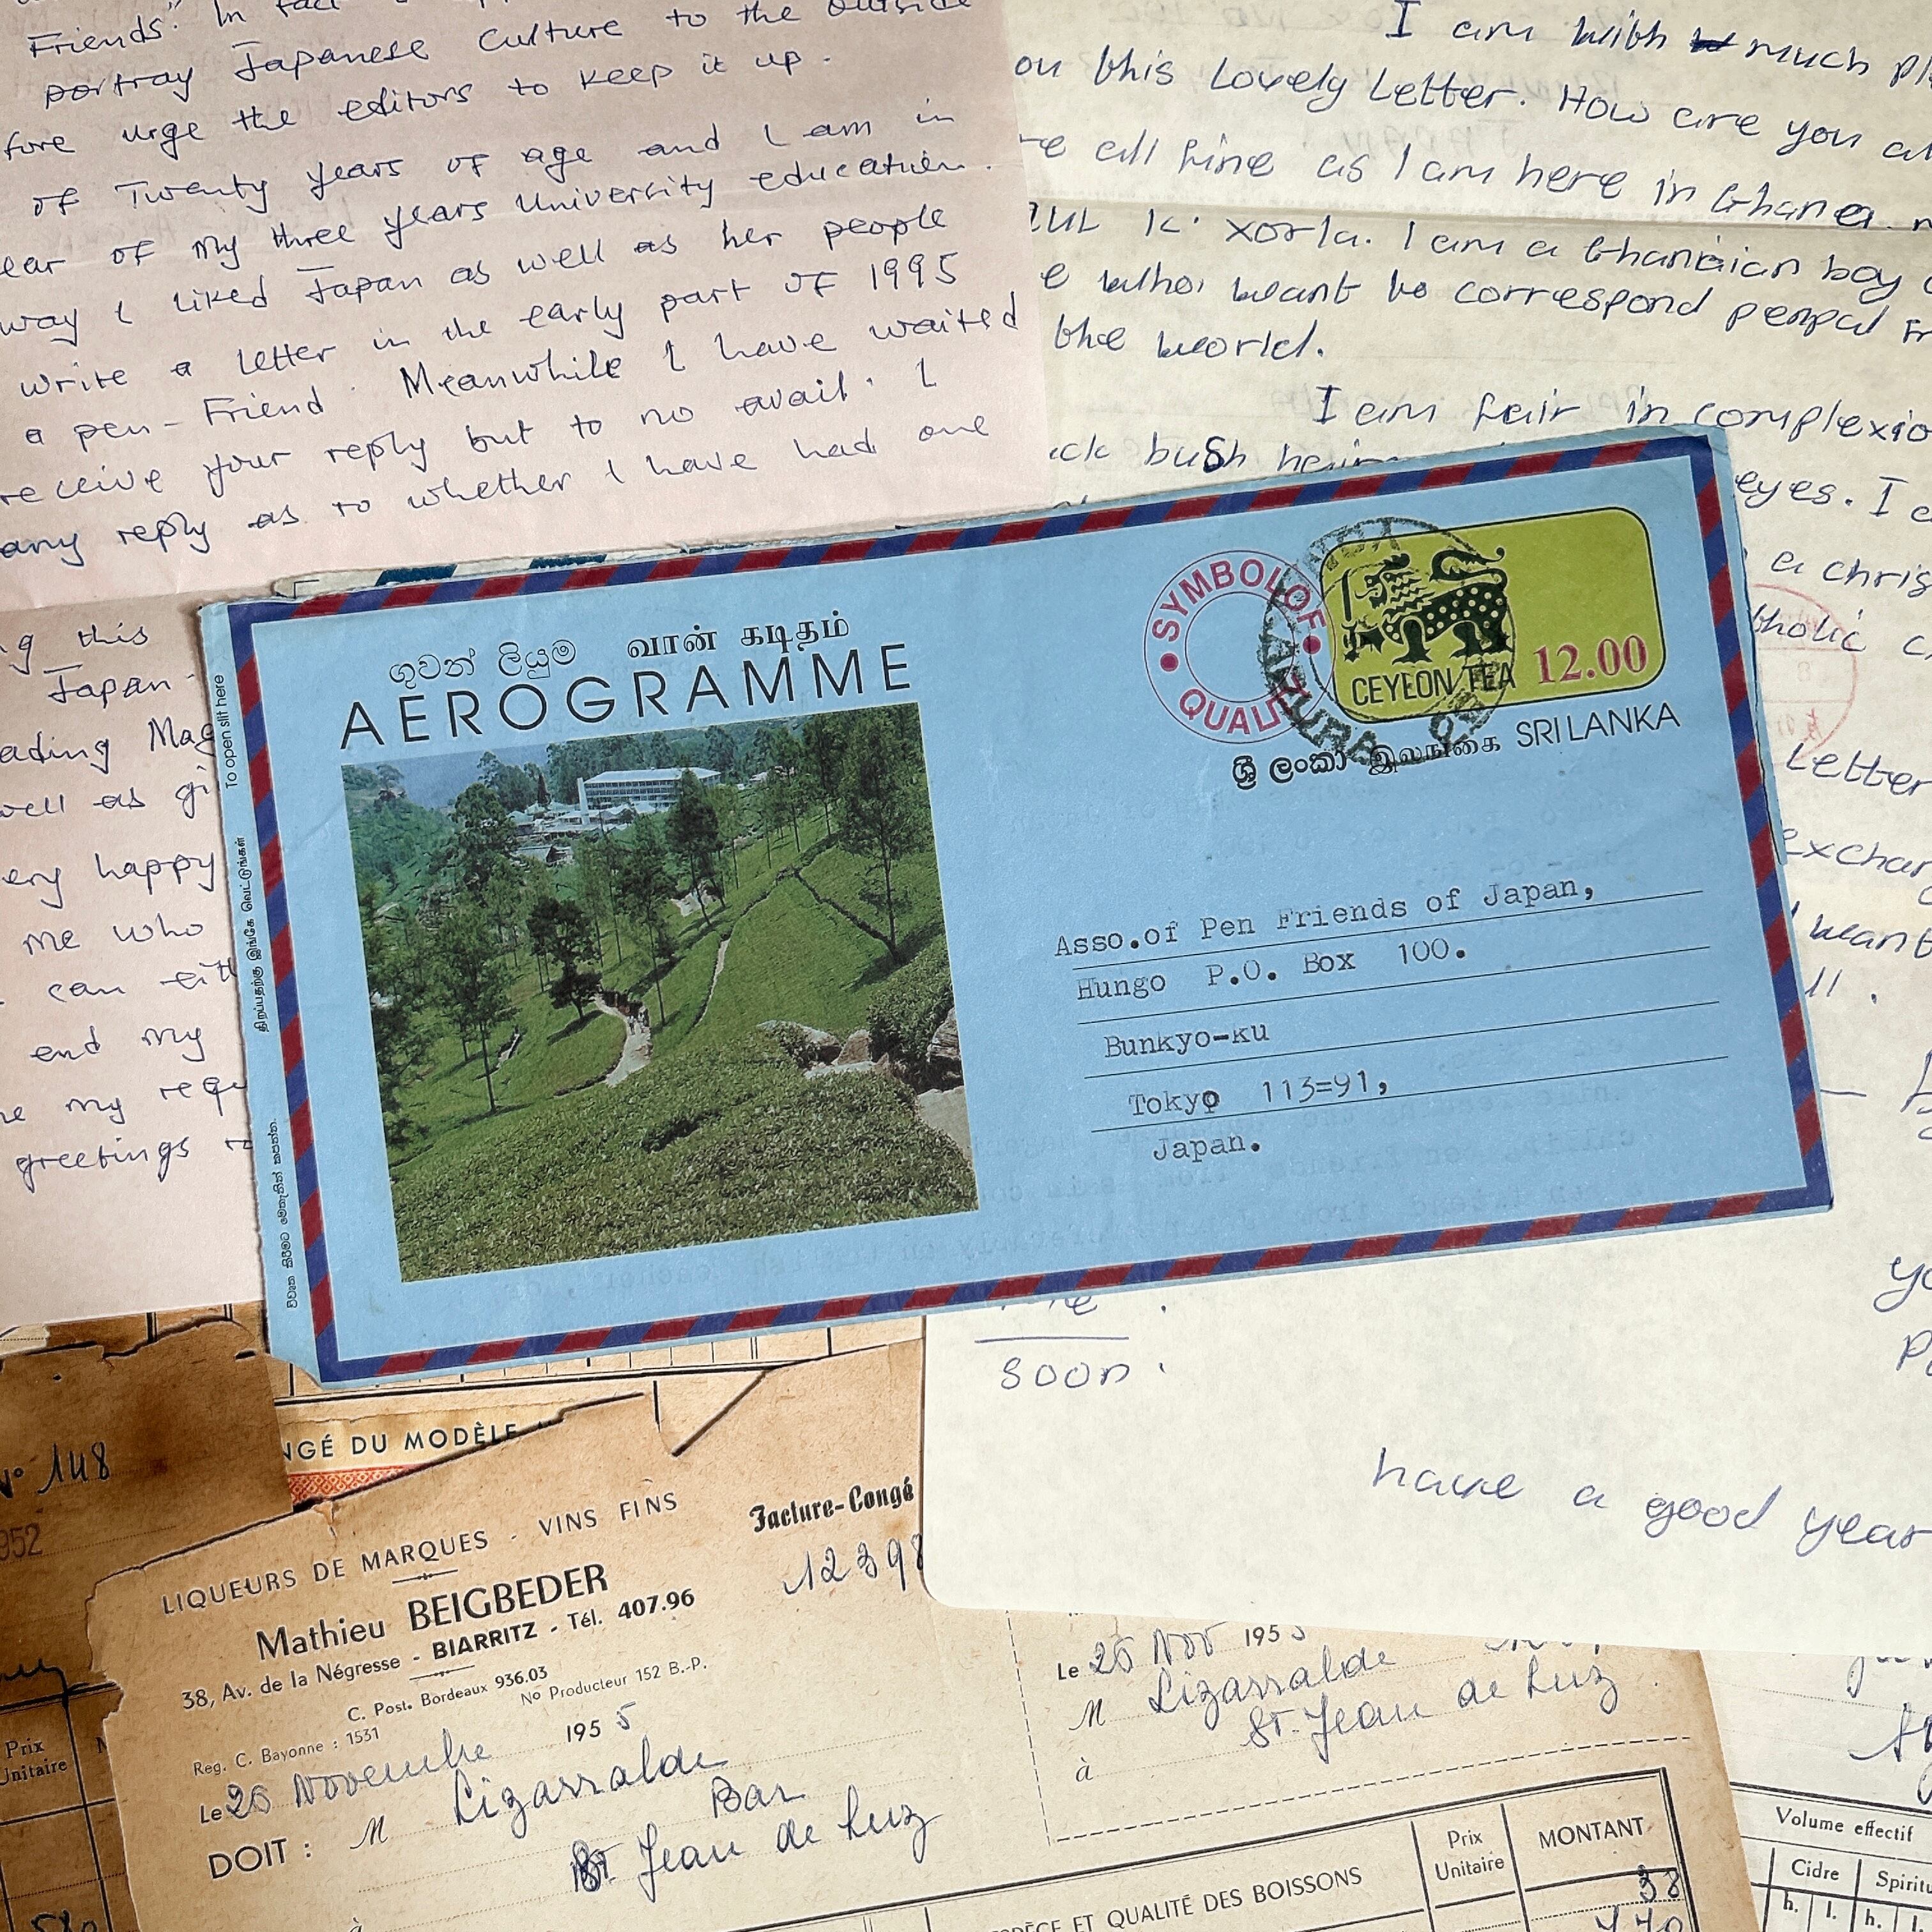 Friends." In fact
portray Japanese Culture to the outside
fore urge the editors to keep it up.
of Twenty years of age and I am in
ear of my three years University education.
way I liked Japan as well as her people
write a letter in the early part of 1995
a pen-Friend. Meanwhile I have waited
receive your reply but to no avail. I
any reply as to whether I have had one
ng this
Japan.
ading Mag
well as gi
ery happy
me who
can eith
end my
me my requ
greetings to
I am with much pl
ou this Lovely Letter. How are you
re all fine as I am here in Ghana.
K. Xorla. I am a Ghanaian boy
e who want to correspond penpal Fr
the world.
I am fair in complexio
ack bush hair
eyes. I
a chris
tholic c
Letter
exchan
want
ll.
ගුවන් ලියුම வான் கடிதம்
AEROGRAMME
To open slit here
திறப்பதற்கு இங்கே வெட்டுங்கள்
SYMBOL OF QUALITY
CEYLON TEA 12.00
ශ්‍රී ලංකා இலங்கை SRI LANKA
Asso.of Pen Friends of Japan,
Hungo P.O. Box 100.
Bunkyo-ku
Tokyo 113=91,
Japan.
soon.
have a good year
N° 148
952
NGÉ DU MODÈLE
LIQUEURS DE MARQUES - VINS FINS
Facture-Congé
Mathieu BEIGBEDER
12398
38, Av. de la Négresse - BIARRITZ - Tél. 407.96
C. Post. Bordeaux 936.03
N° Producteur 152 B.-P.
Reg. C. Bayonne : 1531
Le 26 Novembre 1955
DOIT : M Lizarralde
Bar
St Jean de Luz
à
Le 26 Nov 1955
M Lizarralde
à St. Jean de Luz
Prix Unitaire
ESPÈCE ET QUALITÉ DES BOISSONS
Prix Unitaire
MONTANT
38
Volume effectif
Cidre
Spiritu
h. l. h.